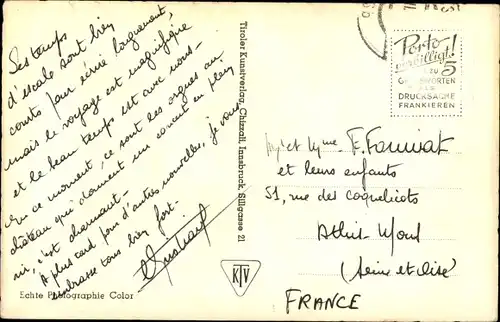 Ses temps
d'escale sont bien
courts pour écrire longuement,
mais le voyage est magnifique
et le beau temps est avec nous.
En ce moment, ce sont les orgues au
château qui donnent un concert en plein
air, c'est charmant.
A plus tard pour d'autres nouvelles, je vous
embrasse tous bien fort.
Echte Photographie Color
Tiroler Kunstverlag, Chizzali, Innsbruck, Sillgasse 21
KTV
Porto
verbilligt!
ZU
5
WORTEN
ALS
DRUCKSACHE
FRANKIEREN
Mr et Mme F.
et leurs enfants
51, rue des coquelicots
Athis Mons
(Seine et Oise)
FRANCE